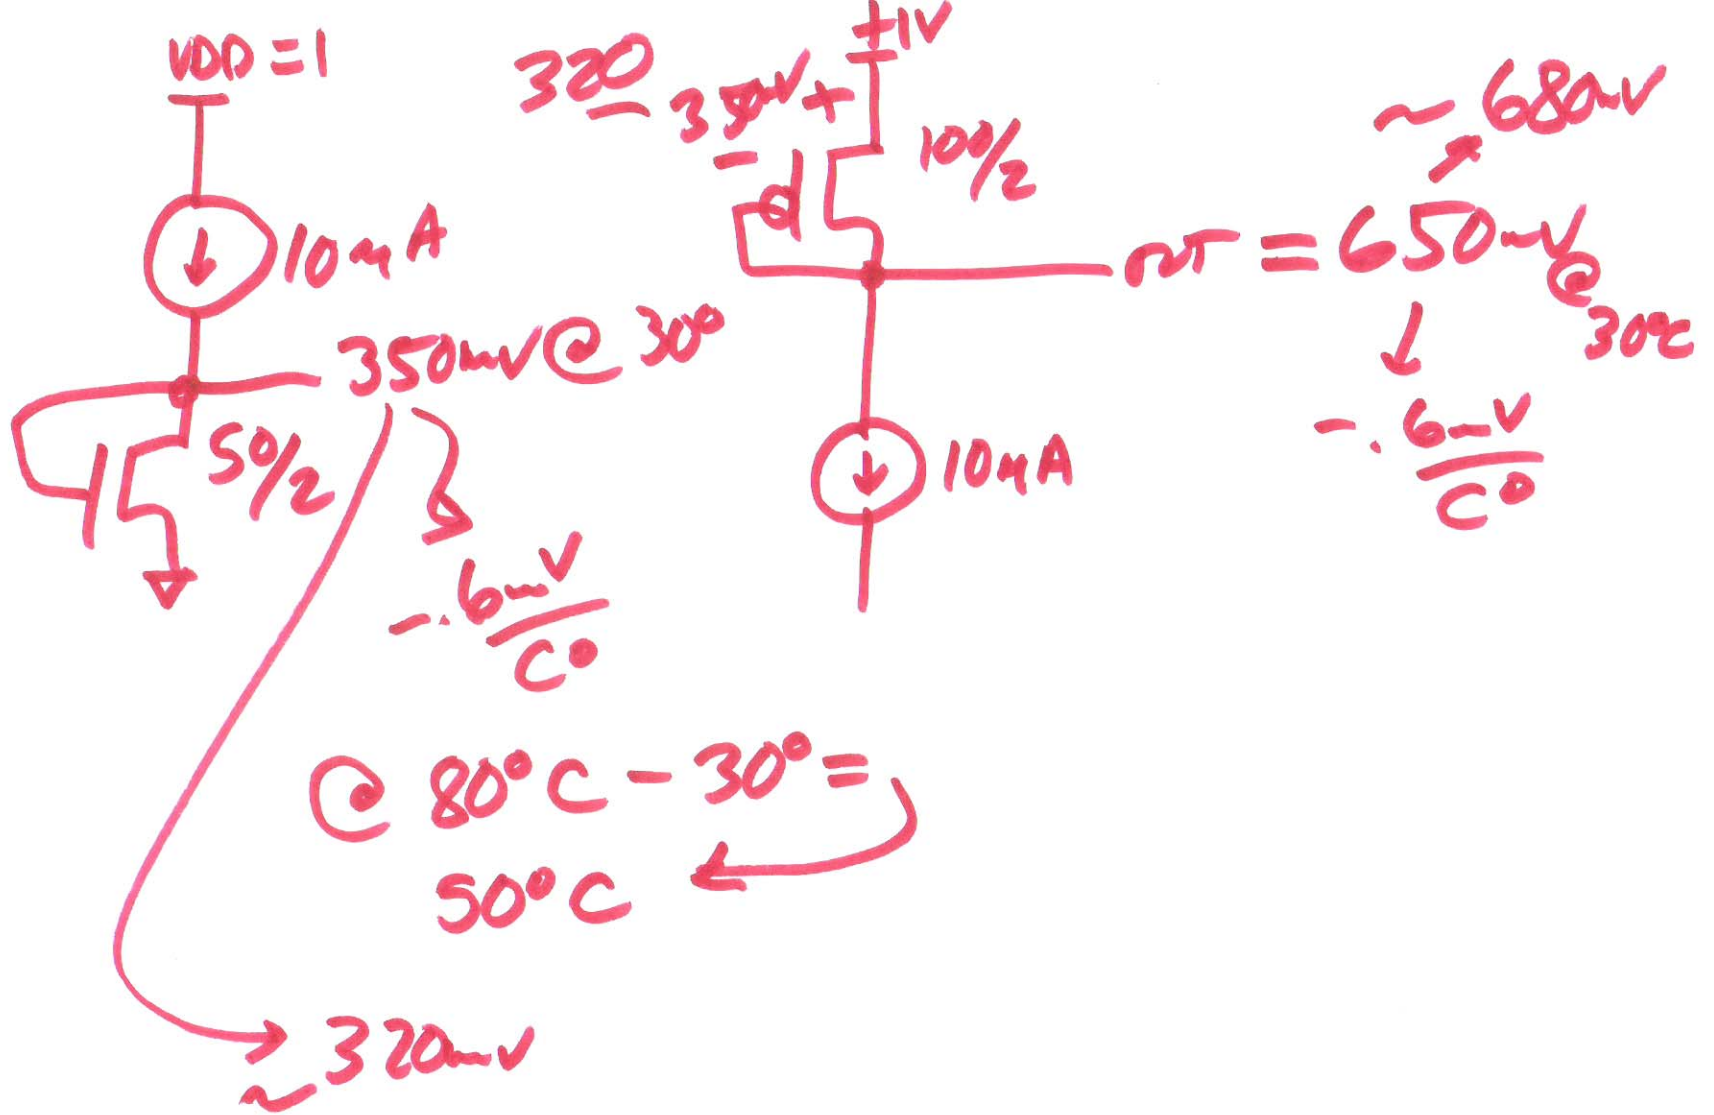 VDD = 1
10 μA
350mV @ 30°
50/2
-.6mV
C°
@ 80°C - 30° =
50°C
~ 320mV
320
350mV +
-
+1V
100/2
OUT = 650mV @ 30°C
~ 680mV
-.6mV
C°
10 μA